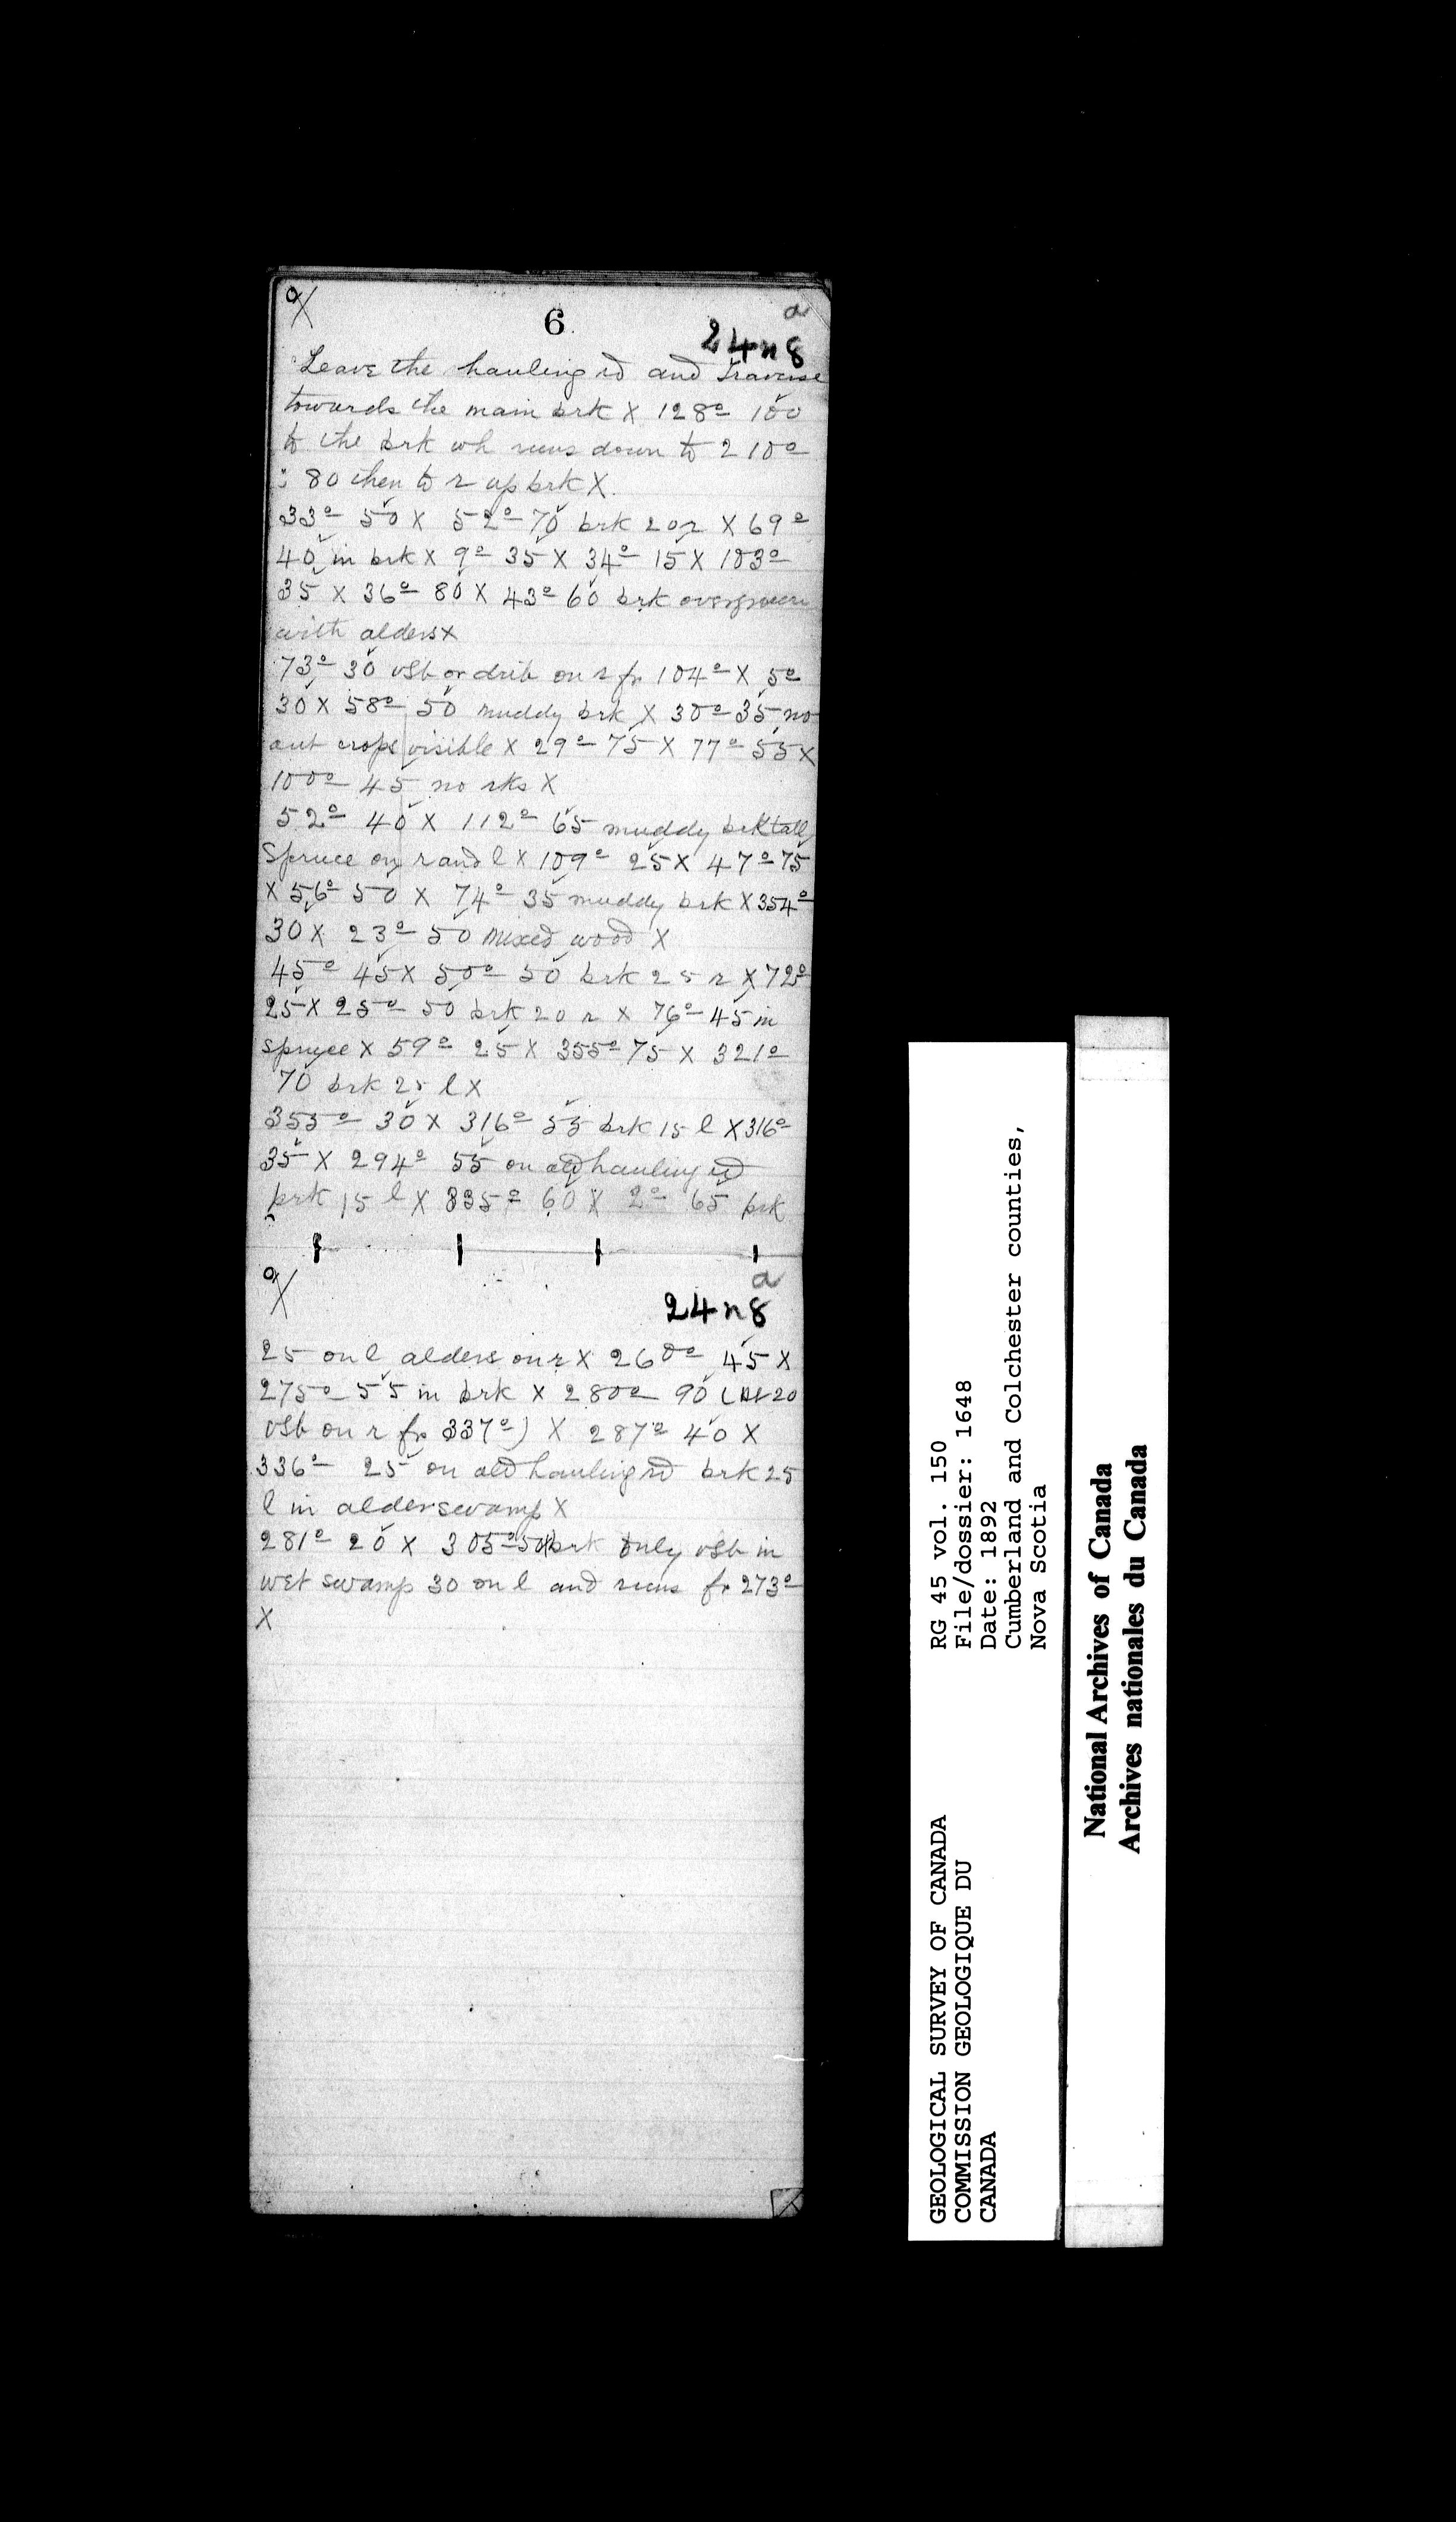 a/
6
a
24n8
Leave the hauling rd and traverse
towards the main brk X 128° 100
to the brk wh runs down to 210°
: 80 then to r up brk X.
33° 50 X 52° 70 brk 20 r X 69°
40 in brk X 9° 35 X 34° 15 X 103°
35 X 36° 80 X 43° 60 brk overgrown
with alders X
73° 30 vsb or drib on r fr 104° X 5°
30 X 58° 50 muddy brk X 30° 35 no
out crops visible X 29° 75 X 77° 55 X
100° 45 no rks X
52° 40 X 112° 65 muddy brk tall
Spruce on r and l X 109° 25 X 47° 75
X 56° 50 X 74° 35 muddy brk X 354°
30 X 23° 50 mixed wood X
45° 45 X 50° 50 brk 25 r X 72°
25 X 25° 50 brk 20 r X 76° 45 in
spruce X 59° 25 X 355° 75 X 321°
70 brk 25 l X
355° 30 X 316° 55 brk 15 l X 316°
35 X 294° 55 on old hauling rd
brk 15 l X 335° 60 X 2° 65 brk
a/
a
24n8
25 on l alders on r X 260° 45 X
275° 55 in brk X 280° 90 (at 20
vsb on r fr 337°) X 287° 40 X
336° 25 on old hauling rd brk 25
l in alder swamp X
281° 20 X 305° 50 brk only vsb in
wet swamp 30 on l and runs fr 273°
X
GEOLOGICAL SURVEY OF CANADA
COMMISSION GEOLOGIQUE DU
CANADA
RG 45 vol. 150
File/dossier: 1648
Date: 1892
Cumberland and Colchester counties,
Nova Scotia
National Archives of Canada
Archives nationales du Canada